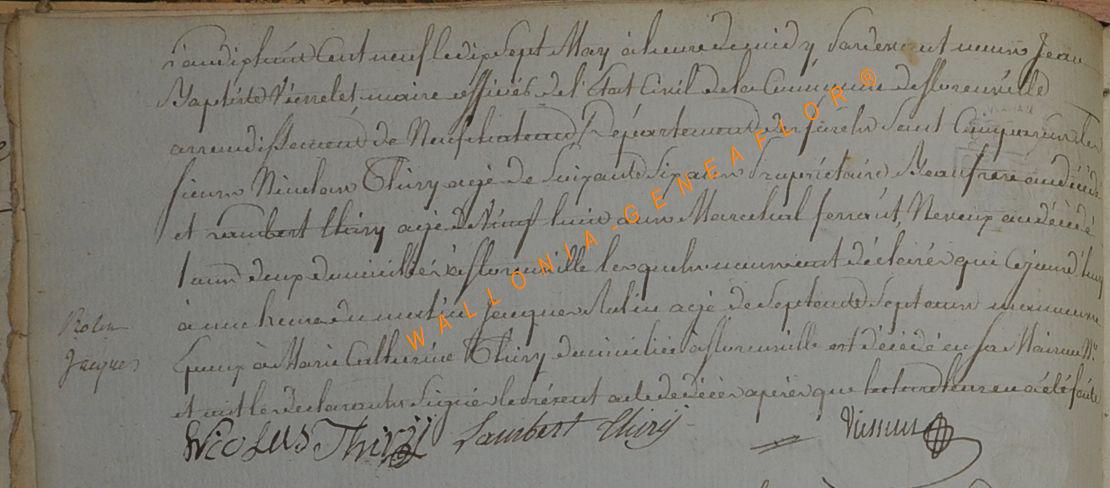 an dix huit Cent neuf le dix Sept May à heure de midy Pardevant nous Jean
Baptiste maire officier de l'Etat Civil de la Commune de florenville
arrondissement de Neufchateau Département des forêts Sont Comparus les
sieurs Nicolas Thiry agé de Soixante Six ans Propriétaire Beaufrere au décédé
et Lambert thiry agé de Vingt huit ans Marechal ferrant Neveux au décédé
tous deux domiciliés à florenville lesquels nous ont déclarés que Cejourd'huy
à une heure du matin Jacques Rolin agé de Septante Sept ans manoeuvre
Epoux à Marie Catherine Thiry domicilié à florenville est décédé en sa Maison
et ont les declarants Signés le présent acte de décès après que lecture leur en a été faite
Rolin
Jacques
Nicolas Thiry Lambert thiry
WALLONIA-GENEAFLOR®